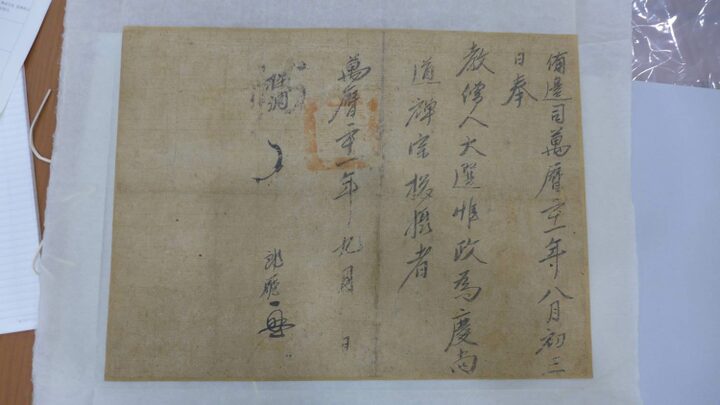 備邊司萬曆二十一年八月初三
日奉
教僧人大選惟政爲慶尙
道禪宗揔攝者
萬曆二十一年九月 日
郎廳